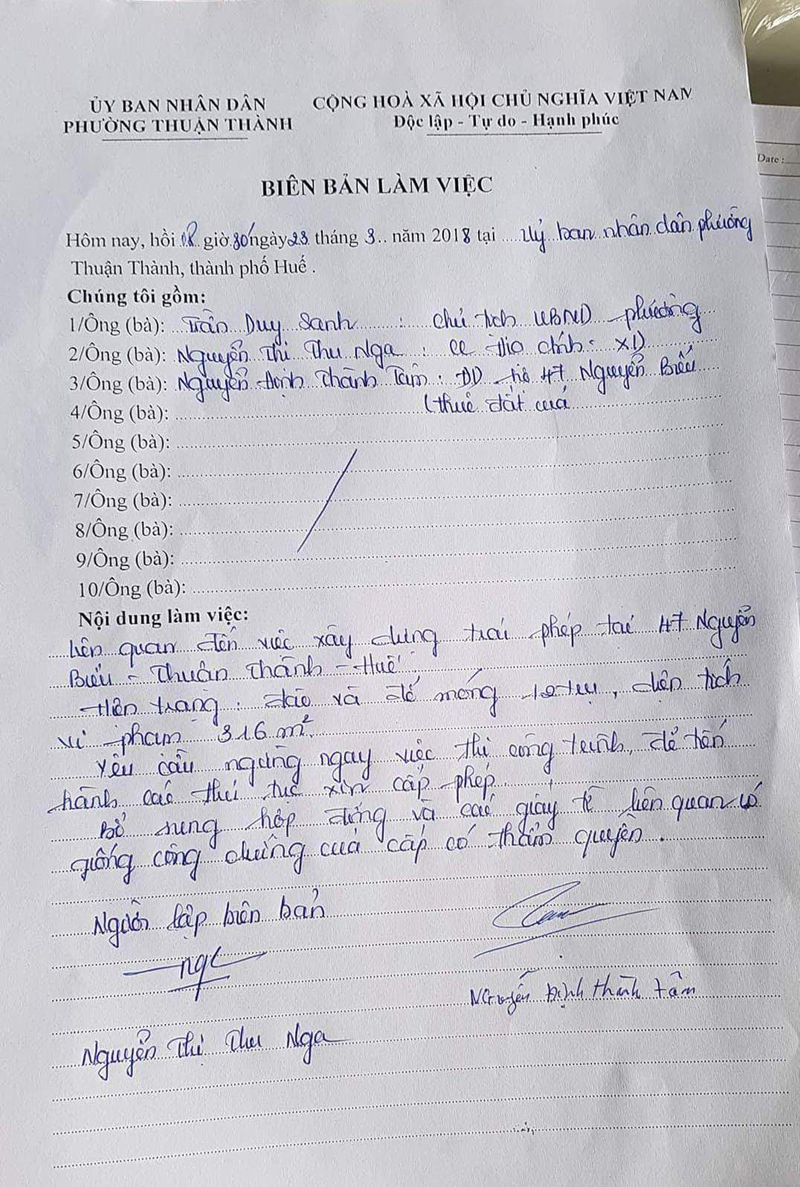 ỦY BAN NHÂN DÂN
PHƯỜNG THUẬN THÀNH
CỘNG HOÀ XÃ HỘI CHỦ NGHĨA VIỆT NAM
Độc lập - Tự do - Hạnh phúc
Date :
BIÊN BẢN LÀM VIỆC
Hôm nay, hồi 08 giờ 30 ngày 23 tháng 3 năm 2018 tại Uỷ ban nhân dân phường
Thuận Thành, thành phố Huế .
Chúng tôi gồm:
1/Ông (bà): Trần Duy Sanh : Chủ tịch UBND phường
2/Ông (bà): Nguyễn Thị Thu Nga : CC Địa chính - XD
3/Ông (bà): Nguyễn Định Thành Tâm : DD 47 Nguyễn Biểu
4/Ông (bà): (thuê đất của
5/Ông (bà):
6/Ông (bà):
7/Ông (bà):
8/Ông (bà):
9/Ông (bà):
10/Ông (bà):
Nội dung làm việc:
Liên quan đến việc xây dựng trái phép tại 47 Nguyễn
Biểu - Thuận Thành - Huế
Hiện trạng : đào và đổ móng 12 trụ, diện tích
vi phạm 316 m².
Yêu cầu ngừng ngay việc thi công trình, để tiến
hành các thủ tục xin cấp phép.
Bổ sung hợp đồng và các giấy tờ liên quan có
công chứng của cấp có thẩm quyền.
Người lập biên bản
Nguyễn Định Thành Tâm
Nguyễn Thị Thu Nga